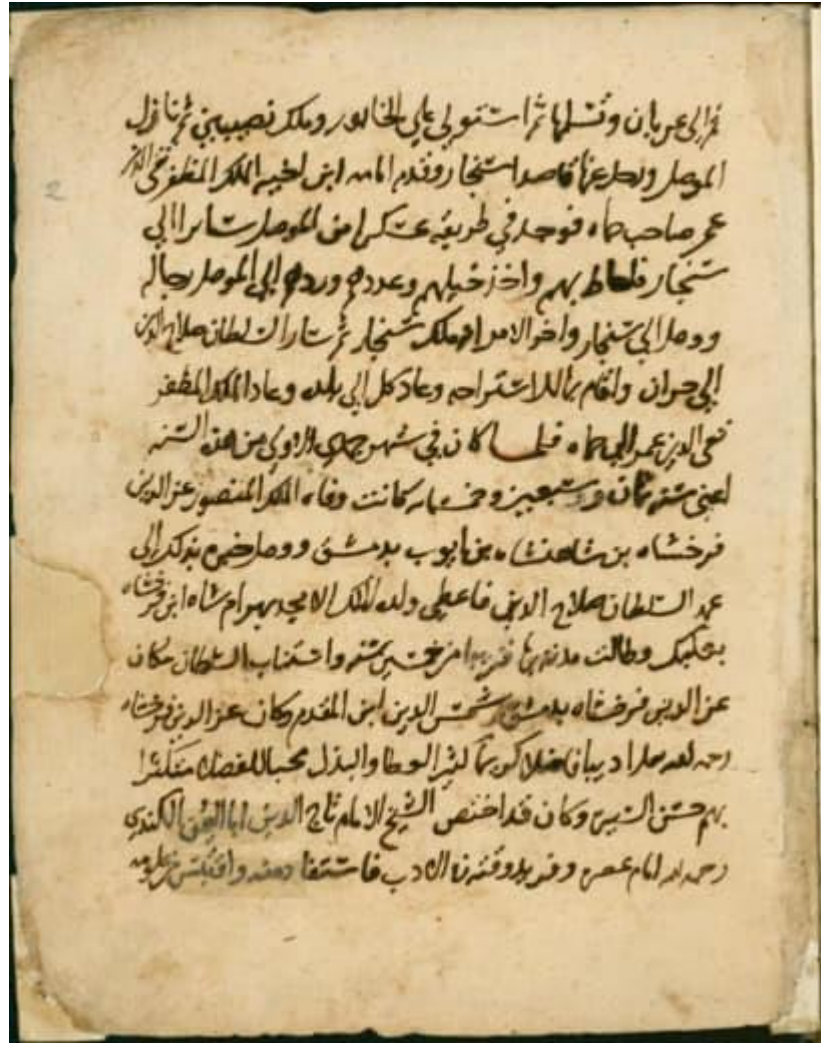 ثم الى عربان وتسلمها ثم استولى على الخابور وملك نصيبين ثم نازل
الموصل ورحل عنها قاصدا سنجار وقدم امامه ابن اخيه الملك المظفر تقي الدين
عمر صاحب حماه فوجد في طريقه عسكرا من الموصل سائرا الي
سنجار فاحاط بهم واخذ خيلهم وعددهم وردهم الي الموصل رجاله
ووصل الي سنجار واخر الامر انه ملك سنجار ثم سار السلطان صلاح الدين
الي حران واقام بها للاستراحه وعاد كل الي بلده وعاد الملك المظفر
تقي الدين عمر الي حماه فلما كان في شهر جمادي الاولي من هذه السنه
اعني سنه ثمان وسبعين وخمسمايه كانت وفاه الملك المنصور عز الدين
فرخشاه بن شاهنشاه بن ايوب بدمشق ووصل خبره بذلك الى
عمه السلطان صلاح الدين فاعطي ولده الملك الامجد بهرام شاه ابن فرخشاه
بعلبك وطالت مدته بها قريبا من خمسين سنه واستناب السلطان مكان
عز الدين فرخشاه بدمشق شمس الدين ابن المقدم وكان عز الدين فرخشاه
رحمه الله ملكا اديبا فاضلا كريما كثير العطا والبذل محبا للفضلا متكثرا
بهم حسن السيره وكان قد اختص الشيخ الامام تاج الدين ابا اليمن الكندي
رحمه الله امام عصره وفريد وقته في الادب فاستفاد منه واقتبس من علومه